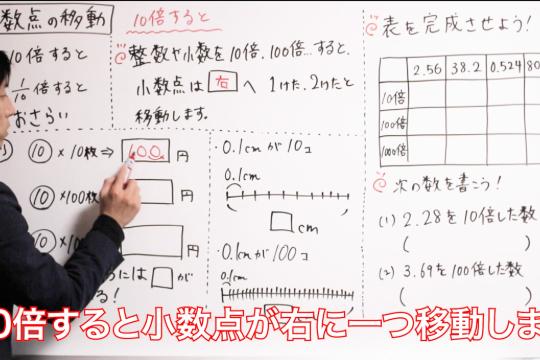 数点の移動
10倍すると
1/10倍すると
おさらい
⑩×10枚⇒ 100 円
⑩×100枚 円
⑩×10 円
には□が
る!
10倍すると
整数や小数を10倍、100倍…すると、
小数点は 右 へ 1けた、2けたと
移動します。
・0.1cmが10コ
0.1cm
□cm
・0.1cmが100コ
0.1cm
表を完成させよう!
2.56 38.2 0.524 80
10倍
100倍
1000倍
次の数を書こう!
(1) 2.28を10倍した数
( )
(2) 3.69を100倍した数
( )
0倍すると小数点が右に一つ移動しま